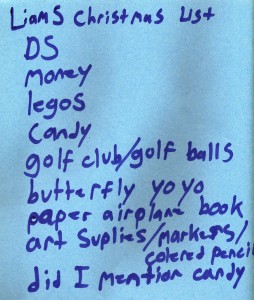 Liams Christmas List
DS
money
legos
candy
golf club/golf balls
butterfly yoyo
paper airplane book
art Suplies/markers/
colered pencil
did I mention candy